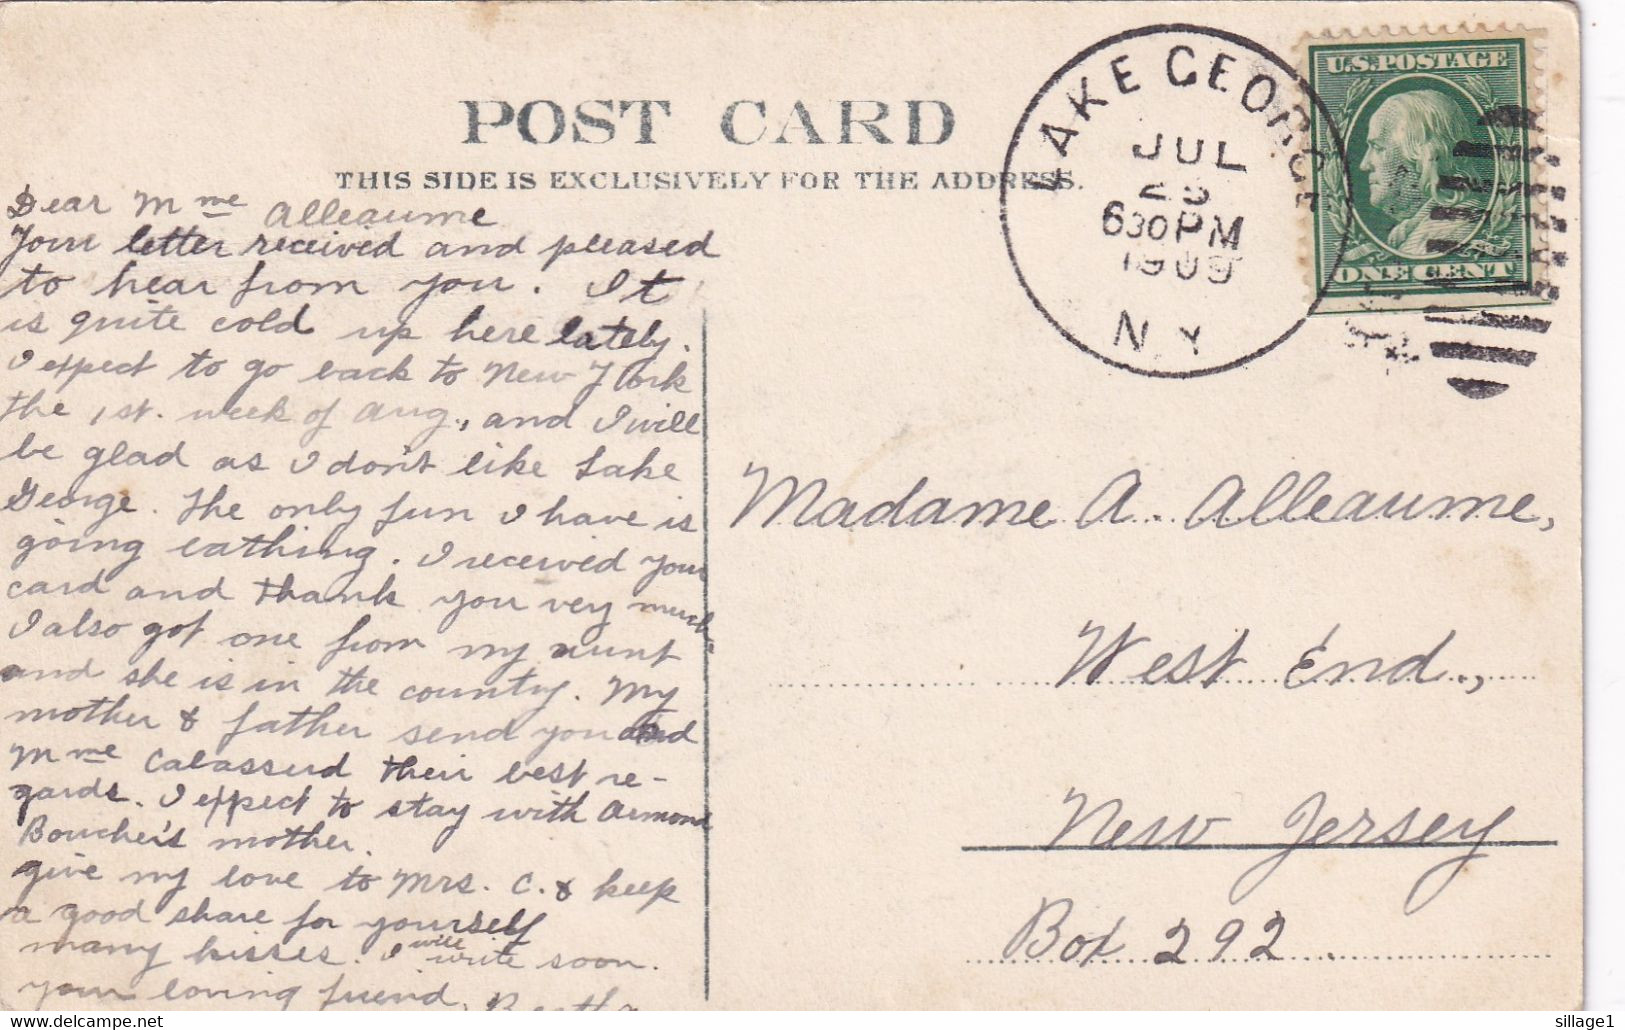 POST CARD
THIS SIDE IS EXCLUSIVELY FOR THE ADDRESS.
LAKE GEORGE
JUL
630PM
1909
N.Y.
U.S.POSTAGE
ONE CENT
Dear Mme Alleaume
Your letter received and pleased
to hear from you. It
is quite cold up here lately.
I expect to go back to New York
the 1st. week of Aug., and I will
be glad as I don't like Lake
George. The only fun I have is
going bathing. I received your
card and thank you very much.
I also got one from my aunt
and she is in the country. My
mother & father send you and
Mme their best re-
gards. I expect to stay with Armond
Boucher's mother.
give my love to Mrs. C. & keep
a good share for yourself
many kisses. I will write soon.
your loving friend, Bertha
Madame A. Alleaume,
West End.,
New Jersey
Box 292.
sillage1